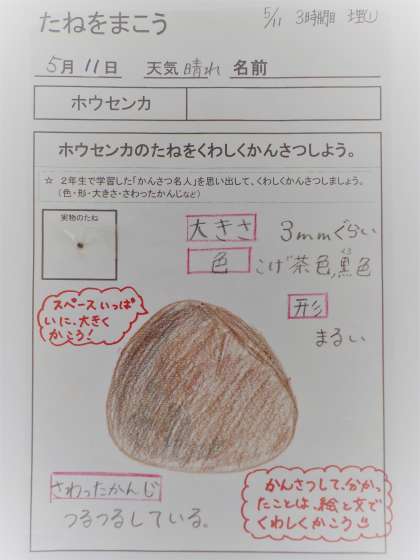 たねをまこう
5/11 3時間目 理①
5月11日 天気 晴れ 名前
ホウセンカ
ホウセンカのたねをくわしくかんさつしよう。
☆ 2年生で学習した「かんさつ名人」を思い出して、くわしくかんさつしましょう。
(色・形・大きさ・さわったかんじなど)
実物のたね
大きさ 3mmぐらい
色 こげ茶色,黒色
くろ
形
まるい
スペースいっぱ
いに、大きく
かこう!
さわったかんじ
つるつるしている。
かんさつして、分かっ
たことは、絵と文で
くわしくかこう